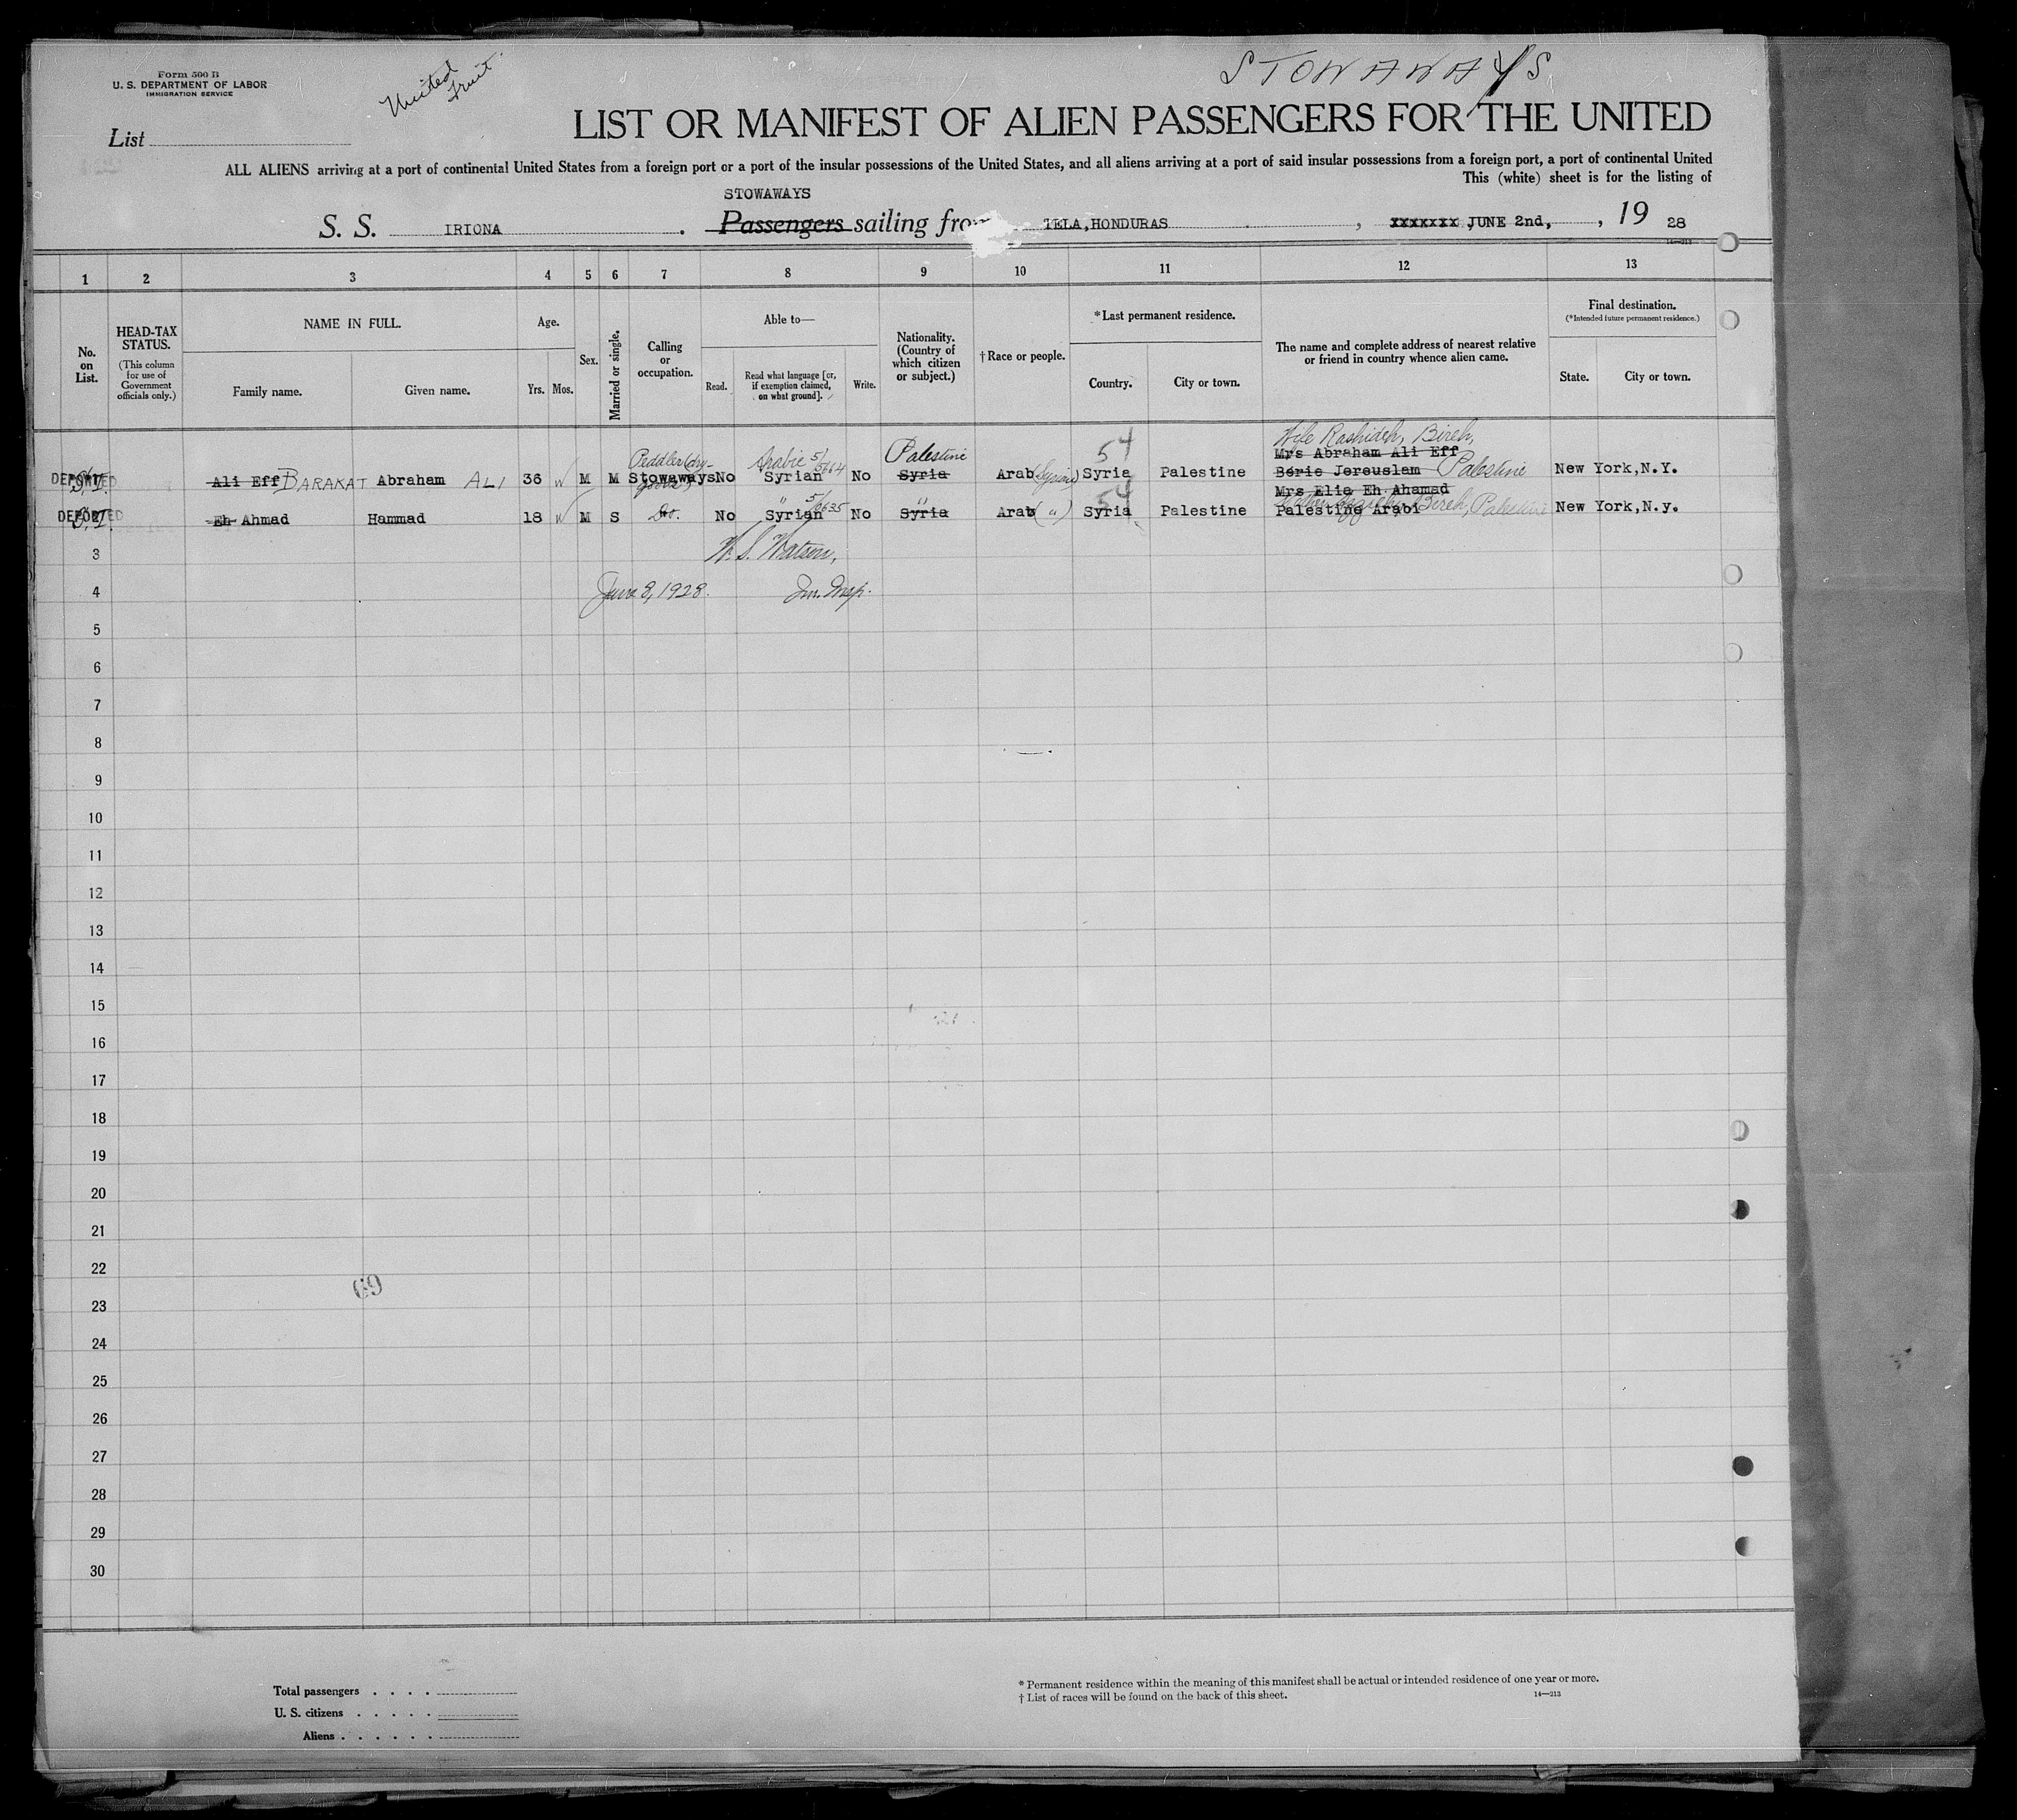 Form 500 B
U. S. DEPARTMENT OF LABOR
IMMIGRATION SERVICE
United Fruit
STOWAWAYS
List
LIST OR MANIFEST OF ALIEN PASSENGERS FOR THE UNITED
ALL ALIENS arriving at a port of continental United States from a foreign port or a port of the insular possessions of the United States, and all aliens arriving at a port of said insular possessions from a foreign port, a port of continental United
This (white) sheet is for the listing of
STOWAWAYS
S. S. IRIONA . Passengers sailing from TELA,HONDURAS , xxxxxxx JUNE 2nd, , 19 28
14—213
1 2 3 4 5 6 7 8 9 10 11 12 13
No. on List.
HEAD-TAX STATUS.
(This column for use of Government officials only.)
NAME IN FULL.
Family name. Given name.
Age.
Yrs. Mos.
Sex.
Married or single.
Calling or occupation.
Able to—
Read. Read what language [or, if exemption claimed, on what ground]. Write.
Nationality. (Country of which citizen or subject.)
†Race or people.
*Last permanent residence.
Country. City or town.
The name and complete address of nearest relative or friend in country whence alien came.
Final destination.
(*Intended future permanent residence.)
State. City or town.
Peddler (dry- goods) Arabic 5/5664 Palestine 54 Wife Rashideh, Bireh,
Mrs Abraham Ali Eff
DEPORTED Ali Eff BARAKAT Abraham ALI 36 M M Stowaways No Syrian No Syria Arab (Syrian) Syria Palestine Berie Jereuslam Palestine New York,N.Y.
" 5/5635 " 54 Mrs Elia Eh Ahamad
DEPORTED Eh Ahmad Hammad 18 M S Do. No Syrian No Syria Arab (") Syria Palestine Palestine Arabi Bireh, Palestine New York,N.y.
3 W. S. Watson,
4 June 8, 1928. Im. Insp.
5
6
7
8
9
10
11
12
13
14
15
16
17
18
19
20
21
22
69
23
24
25
26
27
28
29
30
Total passengers . . . .
U. S. citizens . . . . .
Aliens . . . . . .
* Permanent residence within the meaning of this manifest shall be actual or intended residence of one year or more.
† List of races will be found on the back of this sheet.
14—213